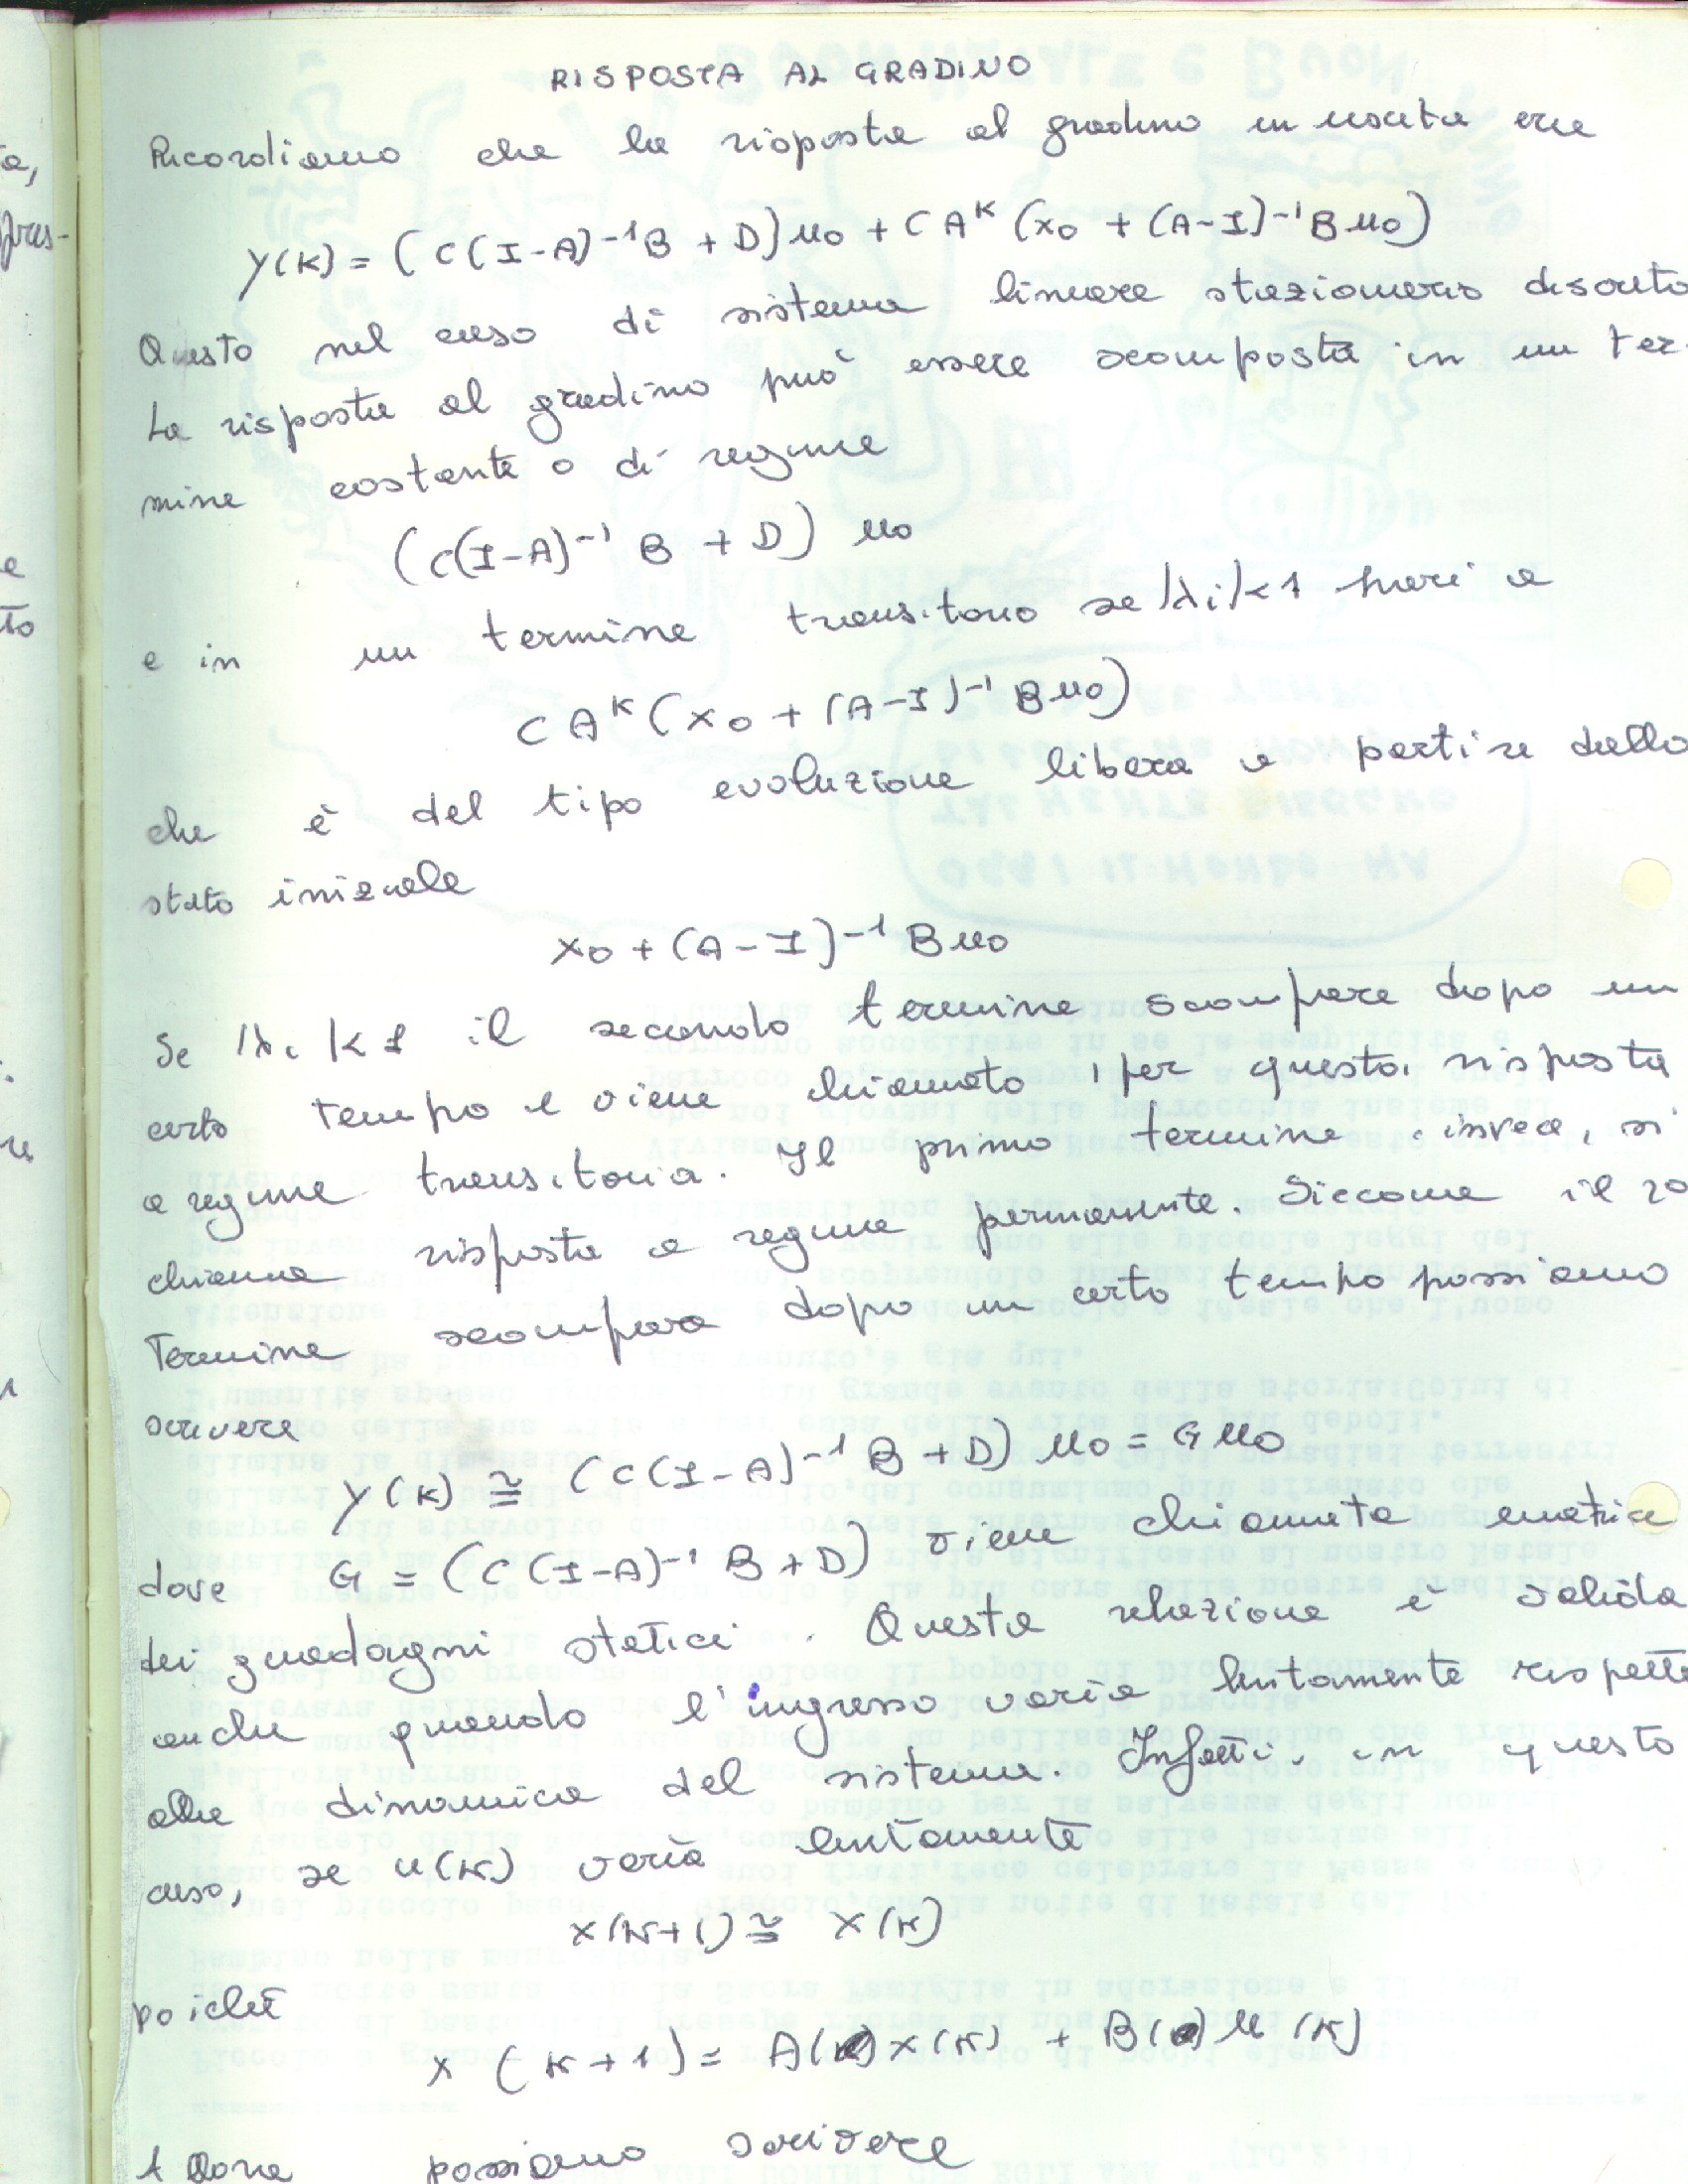 RISPOSTA AL GRADINO
Ricordiamo che la risposta al gradino in uscita era
y(k) = (C(I-A)^-1 B + D) u0 + C A^k (x0 + (A-I)^-1 B u0)
Questo nel caso di sistema lineare stazionario discreto
La risposta al gradino può essere scomposta in un ter-
mine costante o di regime
(C(I-A)^-1 B + D) u0
e in un termine transitorio se |λi|<1 pari a
C A^k (x0 + (A-I)^-1 B u0)
che è del tipo evoluzione libera a partire dallo
stato iniziale
x0 + (A-I)^-1 B u0
Se |λi|<1 il secondo termine scompare dopo un
certo tempo e viene chiamato, per questo, risposta
a regime transitoria. Il primo termine, invece, si
chiama risposta a regime permanente. Siccome il 2o
Termine scompare dopo un certo tempo possiamo
scrivere
y(k) ≅ (C(I-A)^-1 B + D) u0 = G u0
dove G = (C(I-A)^-1 B + D) viene chiamata matrice
dei guadagni statici. Questa relazione è valida
anche quando l'ingresso varia lentamente rispetto
alla dinamica del sistema. Infatti, in questo
caso, se u(k) varia lentamente
x(k+1) ≅ x(k)
poiché
x(k+1) = A x(k) + B u(k)
Allora possiamo scrivere